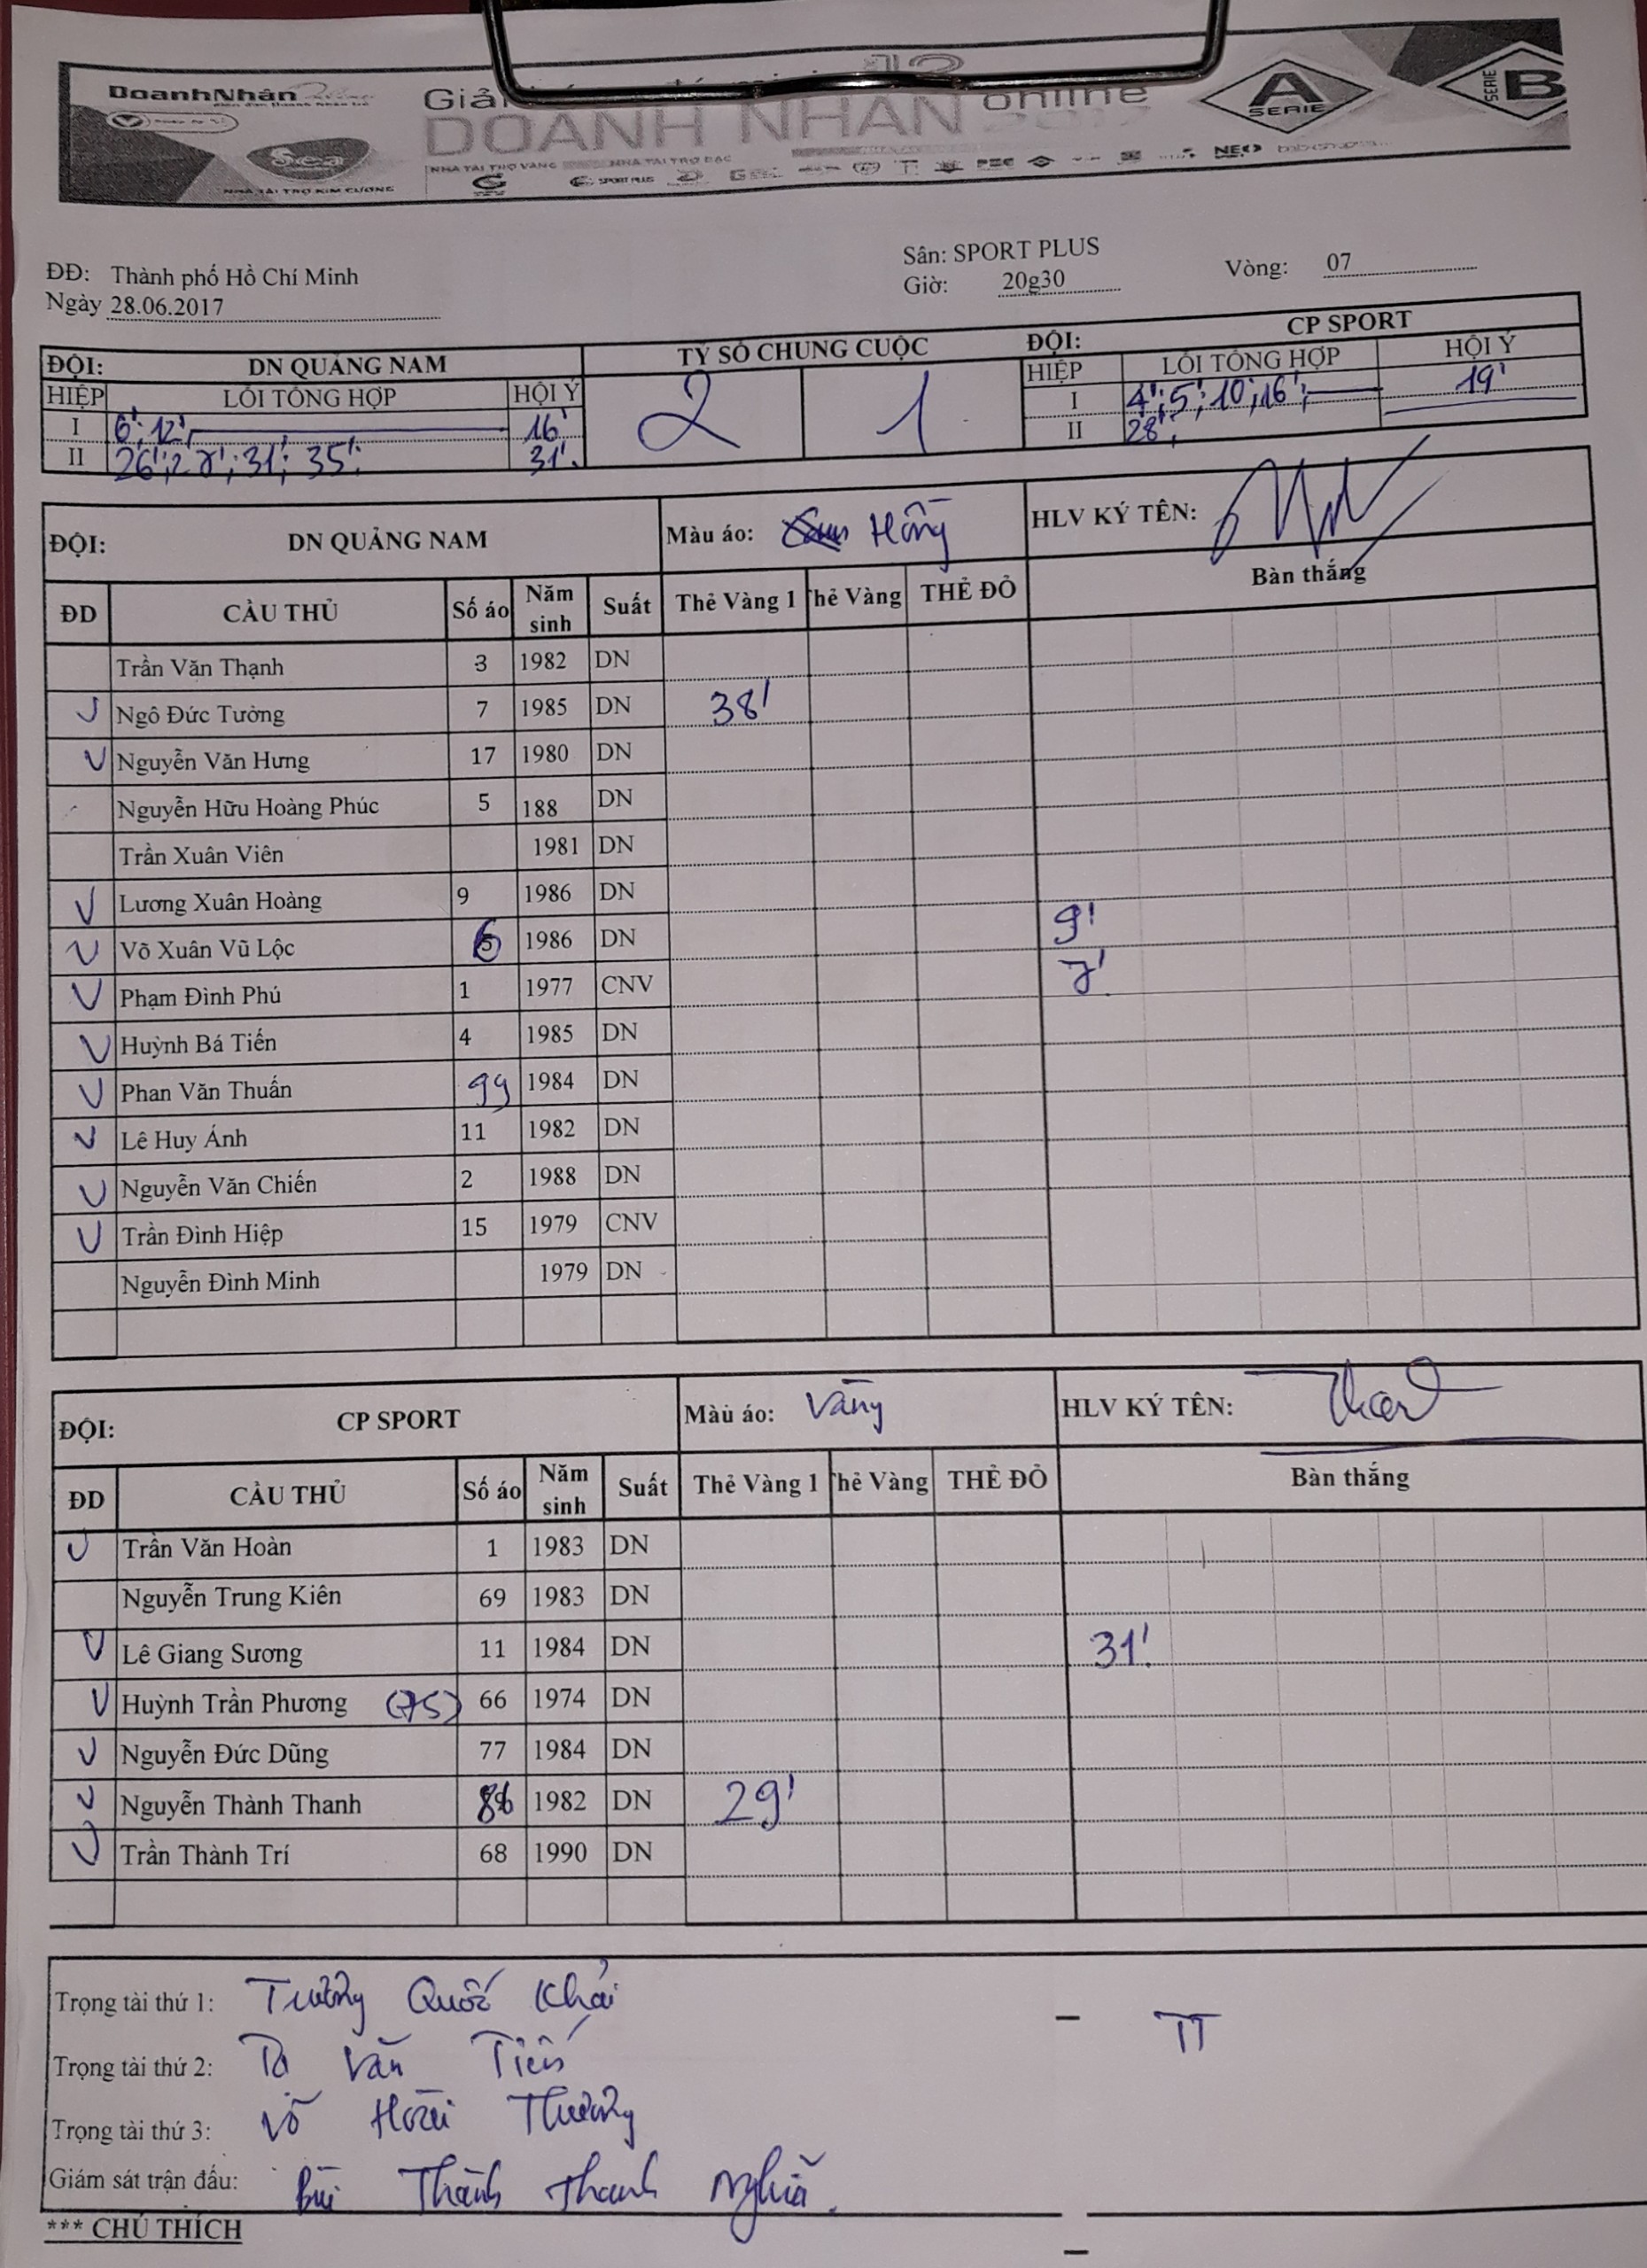 DoanhNhân
Sea
NHÀ TÀI TRỢ KIM CƯƠNG
Giải
DOANH NHÂN online
NHÀ TÀI TRỢ VÀNG NHÀ TÀI TRỢ BẠC
SPORT PLUS
NEO
A
SERIE
SERIE
B
ĐĐ: Thành phố Hồ Chí Minh
Ngày 28.06.2017
Sân: SPORT PLUS
Giờ: 20g30
Vòng: 07
ĐỘI: DN QUẢNG NAM TỶ SỐ CHUNG CUỘC ĐỘI: CP SPORT
HIỆP LỖI TỔNG HỢP HỘI Ý 2 1 HIỆP LỖI TỔNG HỢP HỘI Ý
I 6'; 12' 16' I 4'; 5'; 10'; 16'; 19'
II 26'; 27'; 31'; 35'; 31'. II 28';
ĐỘI: DN QUẢNG NAM Màu áo: Hồng HLV KÝ TÊN:
ĐD CẦU THỦ Số áo Năm sinh Suất Thẻ Vàng 1 hẻ Vàng THẺ ĐỎ Bàn thắng
Trần Văn Thạnh 3 1982 DN
V Ngô Đức Tưởng 7 1985 DN 38'
V Nguyễn Văn Hưng 17 1980 DN
Nguyễn Hữu Hoàng Phúc 5 188 DN
Trần Xuân Viên 1981 DN
V Lương Xuân Hoàng 9 1986 DN
V Võ Xuân Vũ Lộc 6 1986 DN 9'
V Phạm Đình Phú 1 1977 CNV 7'
V Huỳnh Bá Tiến 4 1985 DN
V Phan Văn Thuấn 99 1984 DN
V Lê Huy Ánh 11 1982 DN
V Nguyễn Văn Chiến 2 1988 DN
V Trần Đình Hiệp 15 1979 CNV
Nguyễn Đình Minh 1979 DN
ĐỘI: CP SPORT Màu áo: Vàng HLV KÝ TÊN:
ĐD CẦU THỦ Số áo Năm sinh Suất Thẻ Vàng 1 hẻ Vàng THẺ ĐỎ Bàn thắng
V Trần Văn Hoàn 1 1983 DN
Nguyễn Trung Kiên 69 1983 DN
V Lê Giang Sương 11 1984 DN 31'
V Huỳnh Trần Phương (75) 66 1974 DN
V Nguyễn Đức Dũng 77 1984 DN
V Nguyễn Thành Thanh 1982 DN 29'
V Trần Thành Trí 68 1990 DN
Trọng tài thứ 1: Trương Quốc Khải – TT
Trọng tài thứ 2: Tạ Văn Tiến
Trọng tài thứ 3: Võ Hoài Thương
Giám sát trận đấu: Bùi Thành Thanh Nghĩa.
*** CHÚ THÍCH